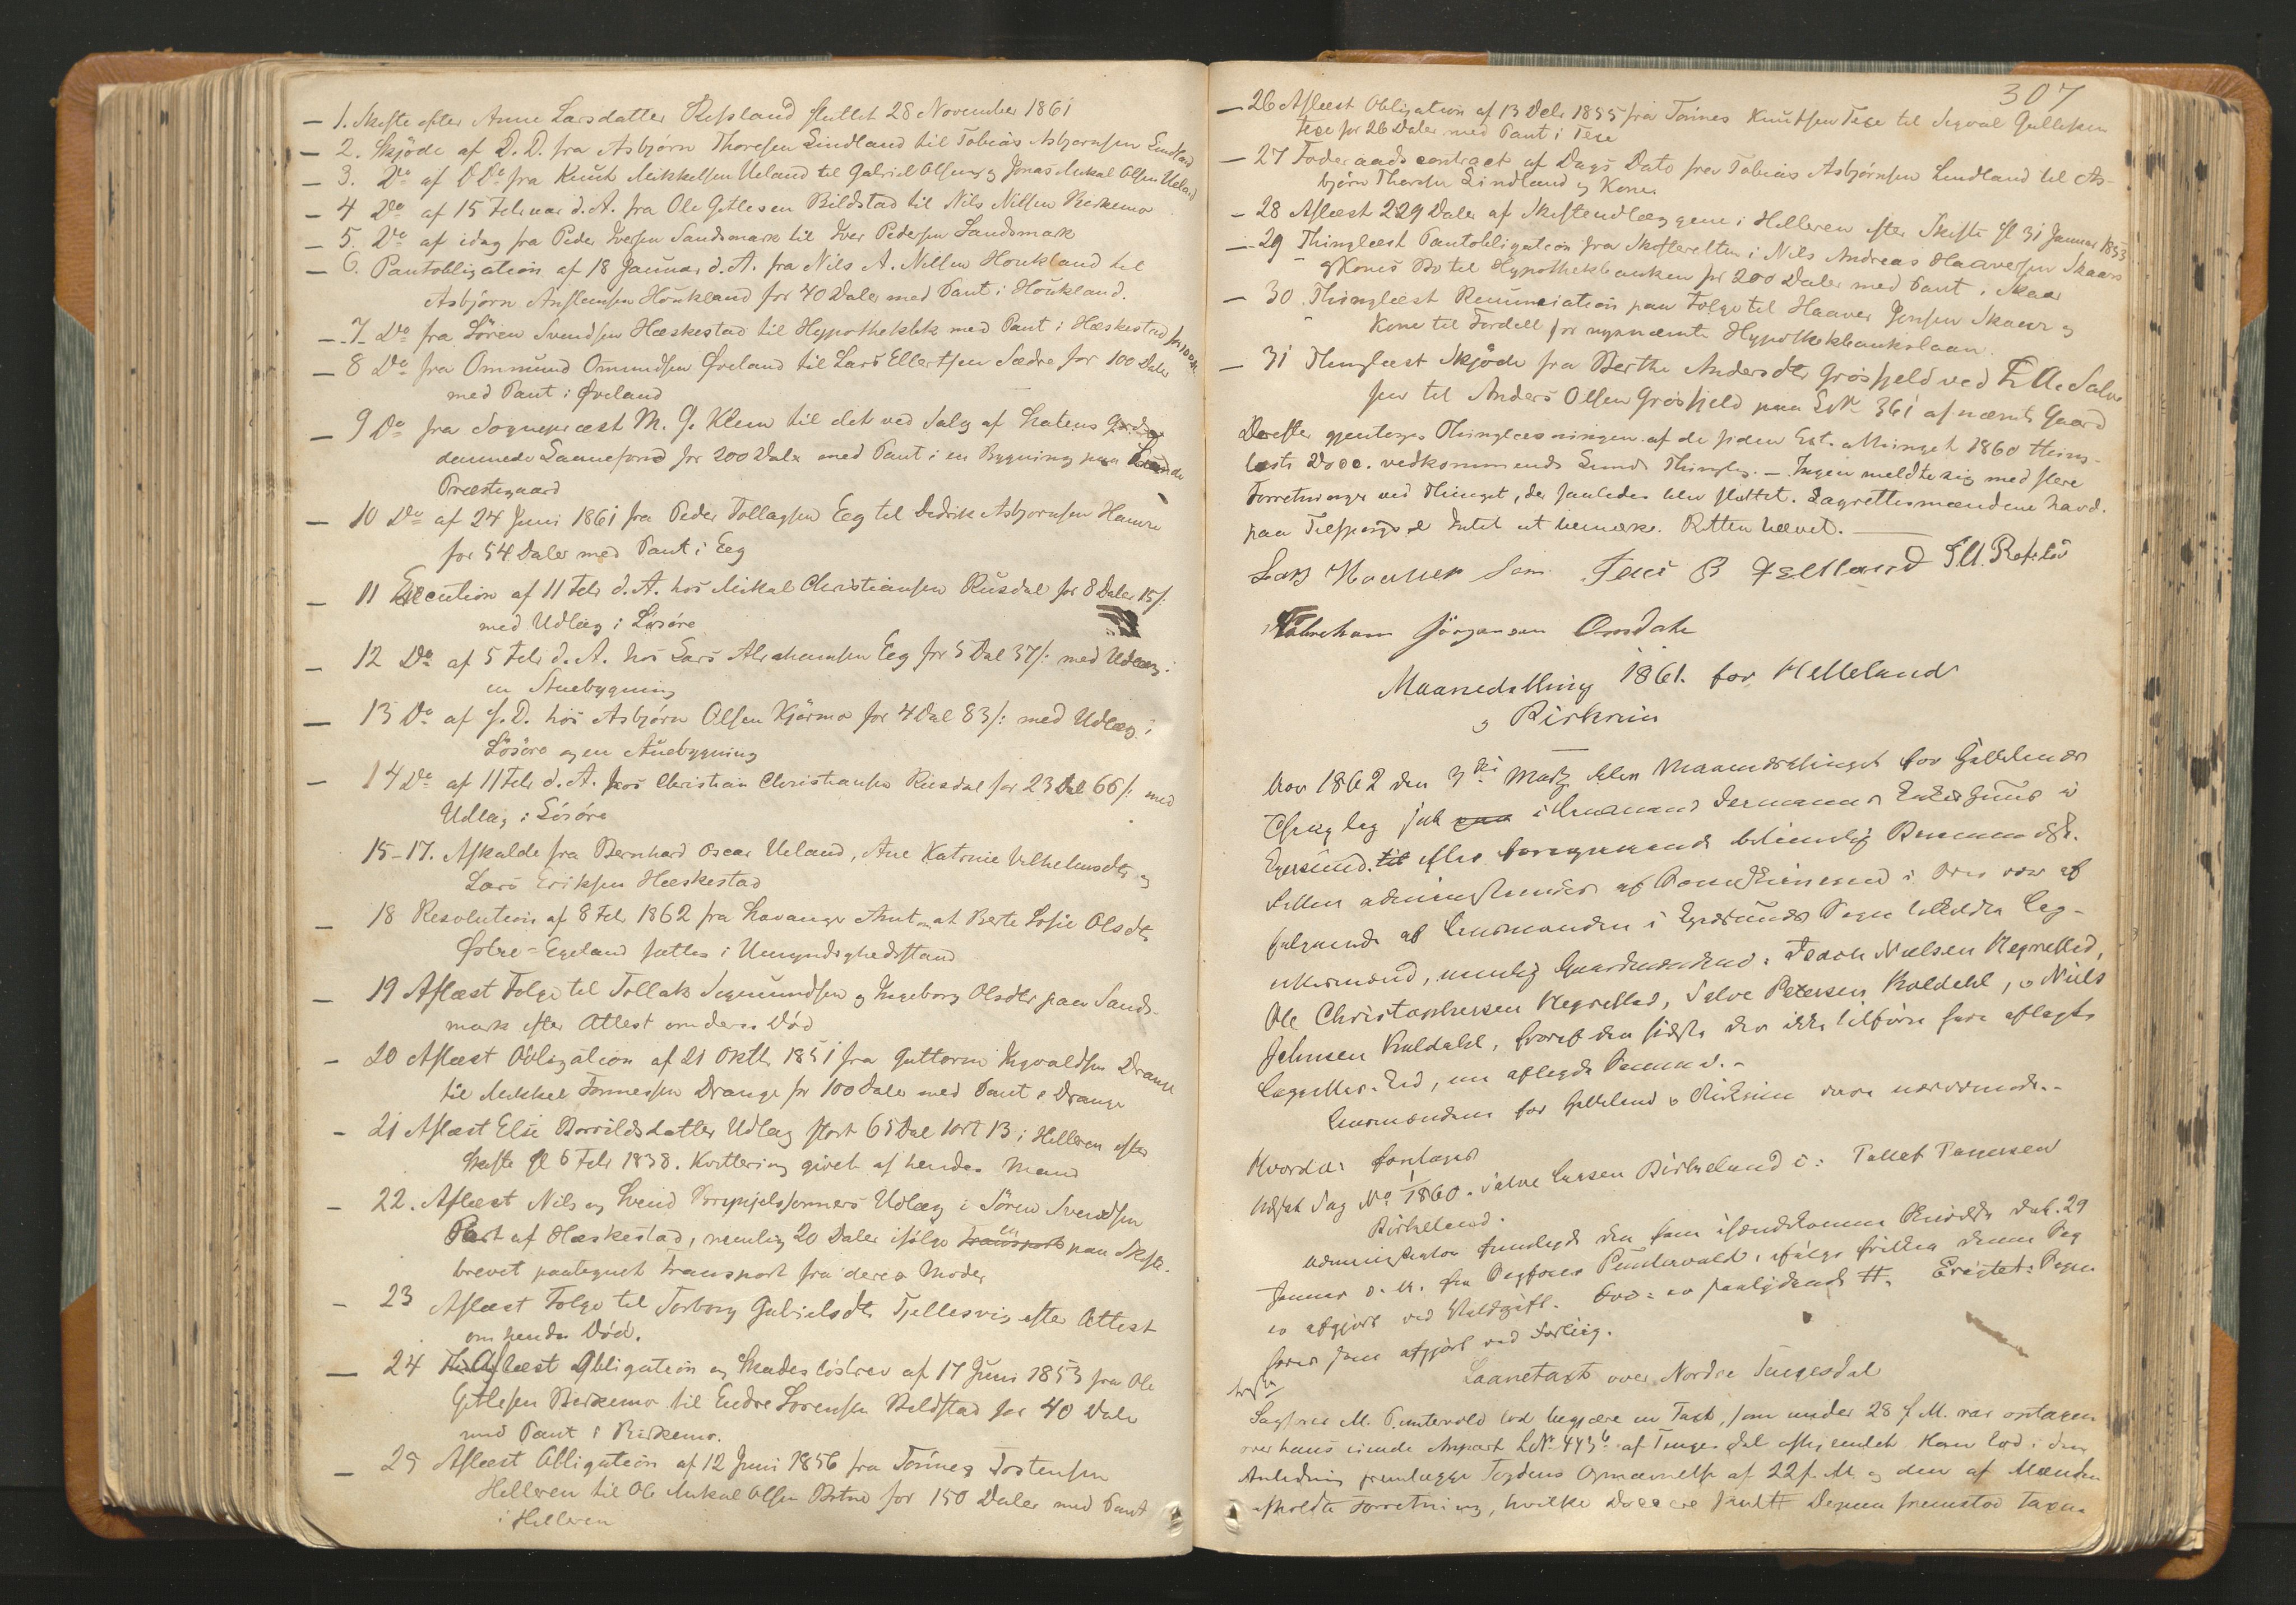 — 1. Skifte efter Anne Larsdatter Refsland sluttet 28 November 1861
— 2. Skjöde af D. D. fra Asbjørn Thoresen Lindland til Tobias Asbjørnsen Lindland
— 3. Do af D Do fra Knud Mikkelsen Ueland til Gabriel Olsen og Jonas Mikal Olsen Ueland
— 4 Do af 15 Februar d. A. fra Ole Gitlesen Bildstad til Nils Nilsen Birkemo
— 5. Do af idag fra Peder Iversen Sandsmark til Iver Pedersen Sandsmark
— 6. Pantobligation af 18 Januar d. A. fra Nils A. Nilsen Houkland til
Asbjørn Houkland for 40 Daler med Pant i Houkland.
— 7 Do fra Sören Svendsen Hæskestad til med Pant i Hæskestad for 100
— 8 Do fra Ommund Omundsen Øveland til Lars Ellertsen Sædre for 100 Daler
med Pant i Øveland
— 9 Do fra Sognepræst M. G. Klem til det ved Salg af Statens
dannede Laanefond for 200 Daler med Pant i en Bygning paa
Præstegaard
— 10 Do af 24 Juni 1861 fra Peder Tollagsen Eeg til Didrik Asbjørnsen Hamre
for 54 Daler med Pant i Eeg
— 11 Execution af 11 Febr d. A. hos Mikal Christiansen Rusdal for 8 Daler 15 /:
med Udlæg i Løsøre
— 12 Do af 5 Febr d. A. hos Lars Abrahamsen Eeg for 5 Dal 37 /: med Udlæg i
en Stuebygning
— 13 Do af s. D. hos Asbjørn Olsen Kjørmo for 4 Dal 83 /: med Udlæg i
Løsøre og en Stuebygning
— 14 Do af 11 Febr d. A. hos Christian Christiansen Rusdal for 23 Dal 66 /: med
Udlæg i Løsøre
15-17. Afkalde fra Bernhard Oscar Ueland, Ane Katrine Vilhelmsdtr og
Lars Eriksen Hæskestad
— 18 Resolution af 8 Feb 1862 fra Stavanger Amt om at Berte Sofie Olsdtr
Østre-Egeland sættes i Umyndighedsstand
— 19 Aflæst Følge til Tollak Sigmundsen og Ingeborg Olsdtr paa Sands-
mark efter Attest om deres Død
— 20 Aflæst Obligation af 21 Oktbr 1851 fra Guttorm Drange
til Mikkel Tønnessen Drange for 100 Daler med Pant i Drange
— 21 Aflæst Else Udlæg stort 65 Dal 1 ort 13 i Helleren efter
Skifte sl 6 Febr 1838. Kvittering givet af hendes Mand
— 22. Aflæst Nils og Svend Udlæg i Sören Svendsen
Part af Hæskestad, nemlig 20 Daler ifølge en paa Skifte-
brevet paategnet Transport fra deres Moder
— 23 Aflæst Følge til Torborg Gabrielsdtr Tjellesvig efter Attest
om hendes Død.
— 24 Aflæst Obligation og Skadesløsbrev af 17 Juni 1853 fra Ole
Gitlesen Birkemo til Endre Sörensen Bildstad for 40 Daler
med Pant i Birkemo.
— 25 Aflæst Obligation af 12 Juni 1856 fra Tönnes Tostensen
Helleren til Ole Mikal Olsen Botne for 150 Daler med Pant
i Helleren
307
— 26 Aflæst Obligation af 13 Debr 1855 fra Tönnes Knudsen Texe til Sigval Gullissen
Texe for 26 Daler med Pant i Texe
— 27 Føderaadscontract af Dags Dato fra Tobias Asbjørnsen Lindland til As-
bjørn Thorsen Lindland og Kone
— 28 Aflæst 229 Daler af Skifteudlæggene i Helleren efter Skifte sl 31 Januar 1853
— 29 Thinglæst Pantobligation fra Skifteretten i Nils Andreas Haaversen Skaars
og Kones Bo til Hypothekbanken for 200 Daler med Pant i Skaar
— 30 Thinglæst Renunciation paa Følge til Haaver Jensen Skaar og
Kone til Fordel for nysnævnte Hypothekbankslaan.
— 31 Thinglæst Skjöde fra Berthe Andersdtr Grøsfjeld ved E A. Salve
sen til Anders Olsen Grøsfjeld paa LNo 361 af nævnte Gaard
Derefter gjentoges Thinglæsningen af de siden Høstthinget 1860 thing-
læste Docc. vedkommende Thinglag. — Ingen meldte sig med flere
Forretninger ved Thinget, der saaledes blev sluttet. Lagrettesmændene havd.
paa Tilspørgsel Intet at bemærke. Retten hævet. —
Lars Sem. Jens B Fetland
Abraham Jörgensen Omdal
Maanedsthing 1861 for Helleland
og Birkrem
Aar 1862 den 3die Marts blev Maanedsthinget for Hellelands
Thinglag sat i Enkes Huus i
Egersund efter foregaaende betimelig Bekjendtgj.
Retten administreredes af i Overvær af
følgende af Lensmanden i Egersunds Sogn tilkaldte Lag-
rettesmænd, nemlig Gaardmændene: Isach Nielsen Hegrestad,
Ole Christophersen Hegrestad, Salve Petersen Kaldahl, og Niels
Johnsen Kaldahl, hvoraf den sidste der ikke tilforn havde aflagt
Lagrettes-Eed, nu aflagde Samme. -
Lensmændene for Helleland og Birkrem vare nærværende. -
Hvorda: foretages
Udsat Sag No 1/1860. Salve Larsen Birkeland c: Tollef Tønnesen
Birkeland.
Administrator fremlagde den ham ihændekomne Skrivelse dat. 29
Januar d. A. fra Sagfører Puntervold, ifølge hvilken denne Sag
er afgjort ved Voldgift. = er saalydende #. Eragtet: Sagen
hæves som afgjort ved Forlig.
Laanetaxt over Nordre Tengesdal
Sagfører M. Puntervold lod begjære en Taxt, som under 28 f. M. var optagen
over hans eiende Anpart LNo 443 b af Tengesdal afhjemlet. Han lod i den
Anledning fremlægge Fogdens Opnævnelse af 22 f. M. og den af Mænden
afholdte Forretning, hvilke Docc ere saal # Derpaa fremstod Taxa-